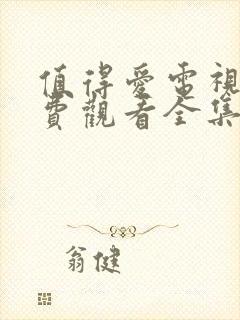 值得愛電視
費觀看全集
翁健